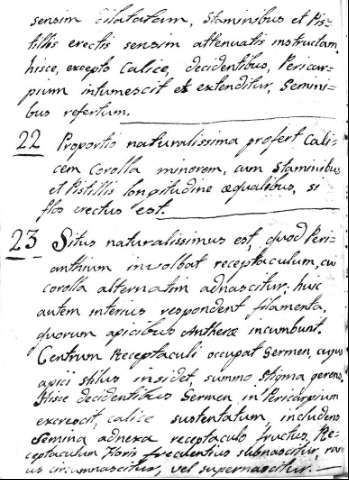 sensim dilatatam, Staminibus et Pis=
tillis erectis sensim attenuatis instructam,
hisce, excepto Calice, decidentibus, Pericar=
pium intumescit et extenditur, Semini=
bus refertum.
22 Proportio naturalissima profert Cali=
cem Corolla minorem, cum Staminibus
et Pistillis longitudine aequalibus, si
flos erectus est.
23 Situs naturalissimus est, quod Peri=
anthium involvat receptaculum, cui
corolla alternatim adnascitur, huic
autem interius respondent filamenta,
quorum apicibus Antherae incumbunt.
Centrum Receptaculi occupat Germen, cujus
apici stilus insidet, summo stigma gerens,
Hisce decidentibus Germen in Pericarpium
excrescit, calice sustentatum includens
Semina adnexa receptaculo fructus, Re=
ceptaculum floris frequentius subnascitur, rari
us circumnascitur, vel supernascitur.